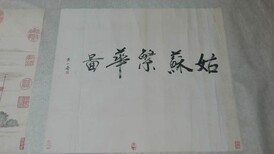 姑蘇繁華圖